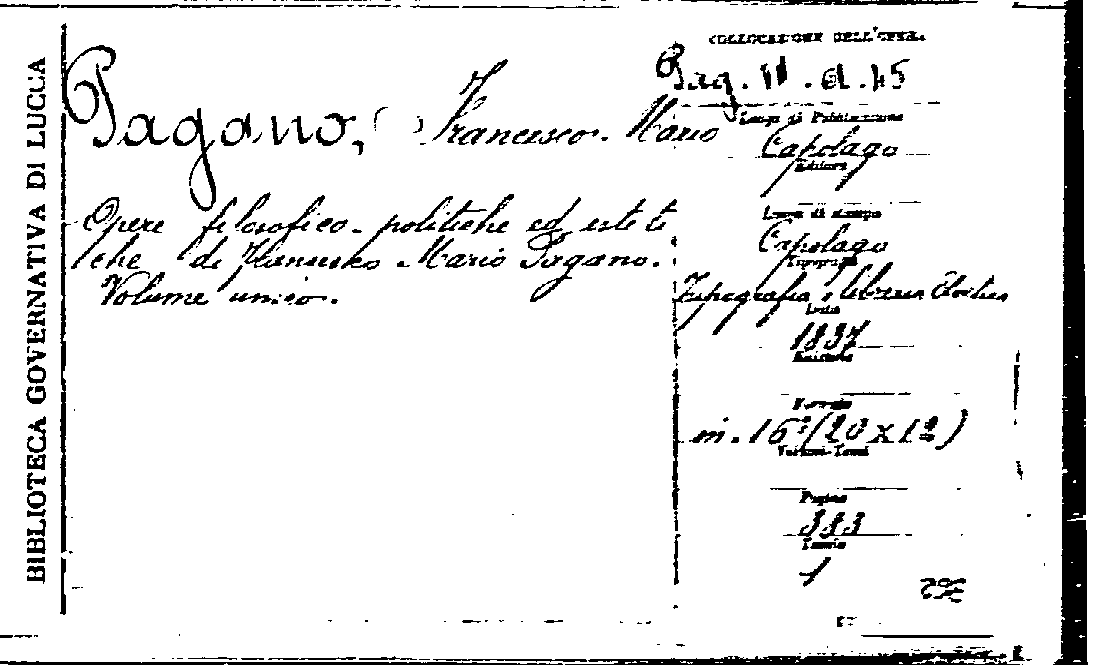 BIBLIOTECA GOVERNATIVA DI LUCCA
Pagano, Francesco Mario
Opere filosofico-politiche ed esteti
che di Francesco Mario Pagano.
Volume unico.
COLLOCAZIONE DELL'OPERA
Pag. VI. a. 45
Luogo di Pubblicazione
Capolago
Editore
Luogo di stampa
Capolago
Tipografia
Tipografia e libreria Elvetica
Data
1837
Edizione
Formato
in-16°(20 x 12)
Volumi-Tomi
Pagine
383
Tavole
1